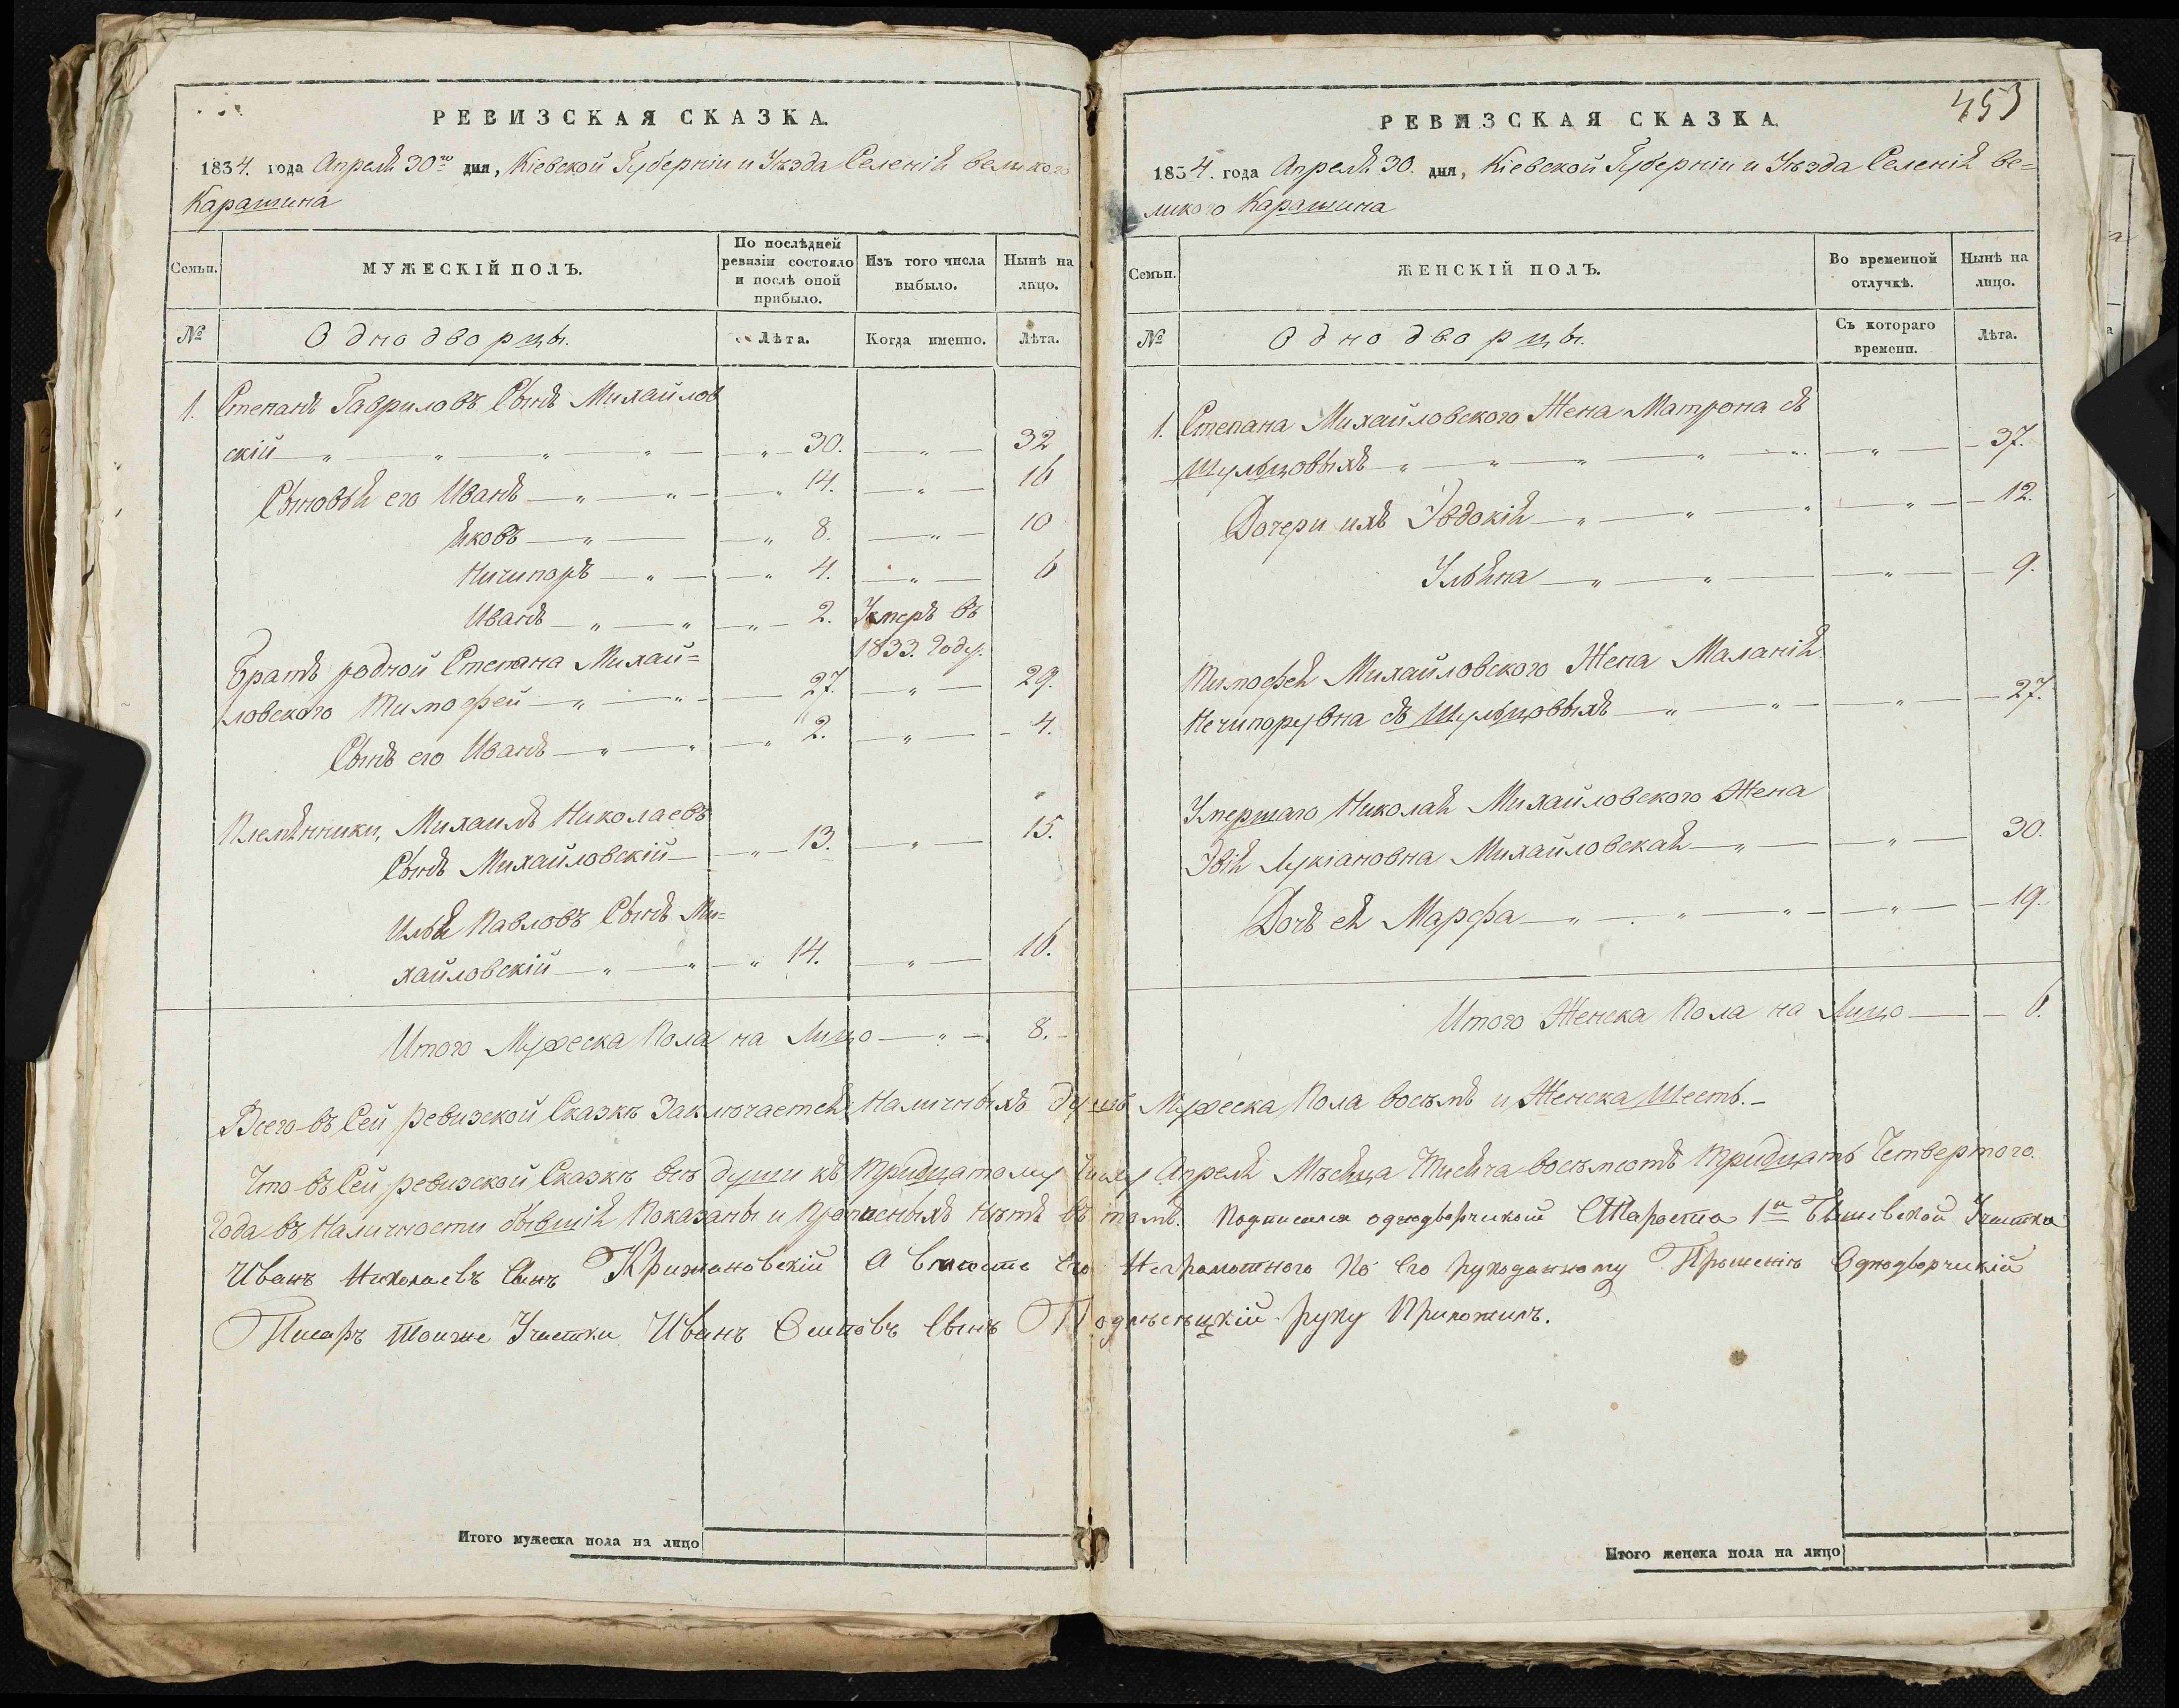 РЕВИЗСКАЯ СКАЗКА.
1834. года Апреля 30го дня, Кіевской Губерніи и Уѣзда Селенія великого
Карашина
Семьи. МУЖЕСКІЙ ПОЛЪ. По послѣдней ревизіи состояло и послѣ оной прибыло. Изъ того числа выбыло. Нынѣ на лицо.
№ Однодворцы. Лѣта. Когда именно. Лѣта.
1. Степанъ Гавриловъ Сынъ Михайлов
скій — „ — „ — „ — „ — 30. — „ — 32
Сыновья его Иванъ — „ — „ — „ 14. — „ — 16
Яковъ — „ — „ 8. — „ — 10
Ничипоръ — „ — „ 4. — „ — 6
Иванъ — „ — „ — „ — 2. Умеръ въ
1833. году.
Братъ родной Степана Михай=
ловского Тимофей — „ — „ — 27. — „ — 29.
Сынъ его Иванъ — „ — „ — „ 2. — „ — 4.
Племянники, Михаилъ Николаевъ
Сынъ Михайловскій — „ — 13. — „ 15.
Илья Павловъ Сынъ Ми=
хайловскій — „ — „ — „ 14. — „ — 16.
Итого Мужеска Пола на Лицо — „ — 8. —
РЕВИЗСКАЯ СКАЗКА.
453
1834. года Апреля 30. дня, Кіевской Губерніи и Уѣзда Селенія ве=
ликого Карашина
Семьи. ЖЕНСКІЙ ПОЛЪ. Во временной отлучкѣ. Нынѣ на лицо.
№ Однодворцы. Съ котораго времени. Лѣта.
1. Степана Михайловского Жена Матрона съ
Шульцовыхъ — „ — „ — „ — „ — „ — 37.
Дочери ихъ Эвдокія — „ — „ — „ — „ — 12.
Ульяна — „ — „ — „ — 9.
Тимофея Михайловского Жена Маланія
Ничипорувна съ Шульцовыхъ — „ — „ — „ — 27.
Умершаго Николая Михайловского Жена
Эвія Лукіановна Михайловская — „ — „ — 30.
Дочь ея Марфа — „ — „ — „ — „ — 19.
Итого Женска Пола на Лицо — 6.
Всего въ Сей ревизской Сказкѣ Заключается Наличныхъ душъ Мужеска Пола восъмъ и Женска Шесть. —
Что въ Сей ревизской Сказкѣ всѣ души къ Тридцатому Числу Апреля Мѣсяца Тисяча восѣмсотъ Тридцать Четвертого
Года въ Наличности бывшія Показаны и Прописныхъ нѣтъ въ томъ. Подписался однодворчиской Староста 1й Бышевской Учатка
Иванъ Николаевъ Сынъ Крижановскій А вместо Его Неграмотного По Его рукоданному Прошенію Однодворчискій
Писаръ Тоиже Учатки Иванъ Осиповъ Сынъ Подлѣсѣцкій руку Приложилъ.
Итого мужеска пола на лицо
Итого женска пола на лицо